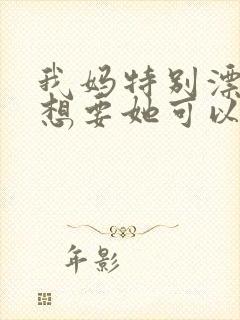 我妈特别漂
想要她可以
年影